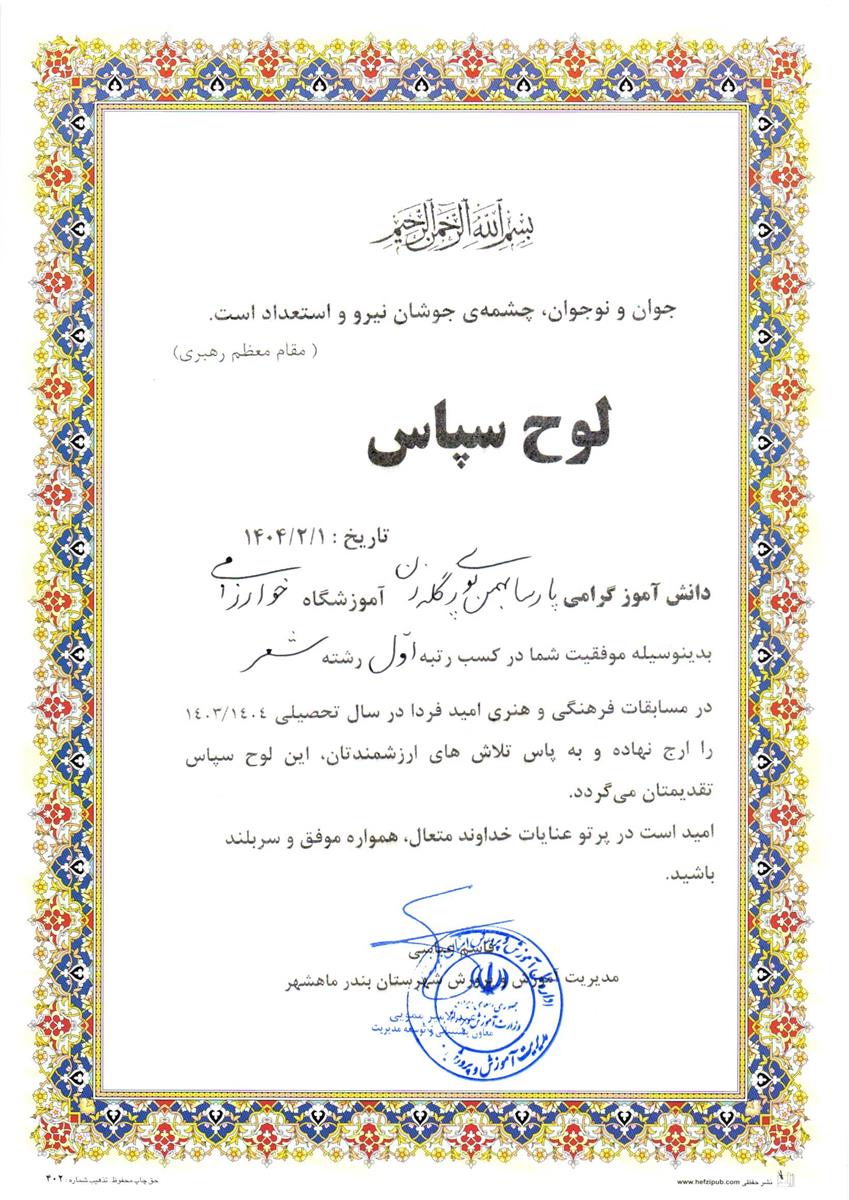 بسم الله الرحمن الرحیم
جوان و نوجوان، چشمه‌ی جوشان نیرو و استعداد است.
( مقام معظم رهبری)
لوح سپاس
تاریخ : ۱۴۰۴/۲/۱
دانش آموز گرامی پارسا بهمن پوری گله زن آموزشگاه خوارزمی
بدینوسیله موفقیت شما در کسب رتبه اوّل رشته شعر
در مسابقات فرهنگی و هنری امید فردا در سال تحصیلی ۱۴۰۳/۱۴۰۴
را ارج نهاده و به پاس تلاش های ارزشمندتان، این لوح سپاس
تقدیمتان می‌گردد.
امید است در پرتو عنایات خداوند متعال، همواره موفق و سربلند
باشید.
قاسم عباسی
مدیریت آموزش و پرورش شهرستان بندر ماهشهر
معاون پشتیبانی و توسعه مدیریت
جمهوری اسلامی ایران
وزارت آموزش و پرورش
مدیریت آموزش و پرورش
نشر حفظی www.hefzipub.com
حق چاپ محفوظ. تذهیب شماره : ۳۰۲